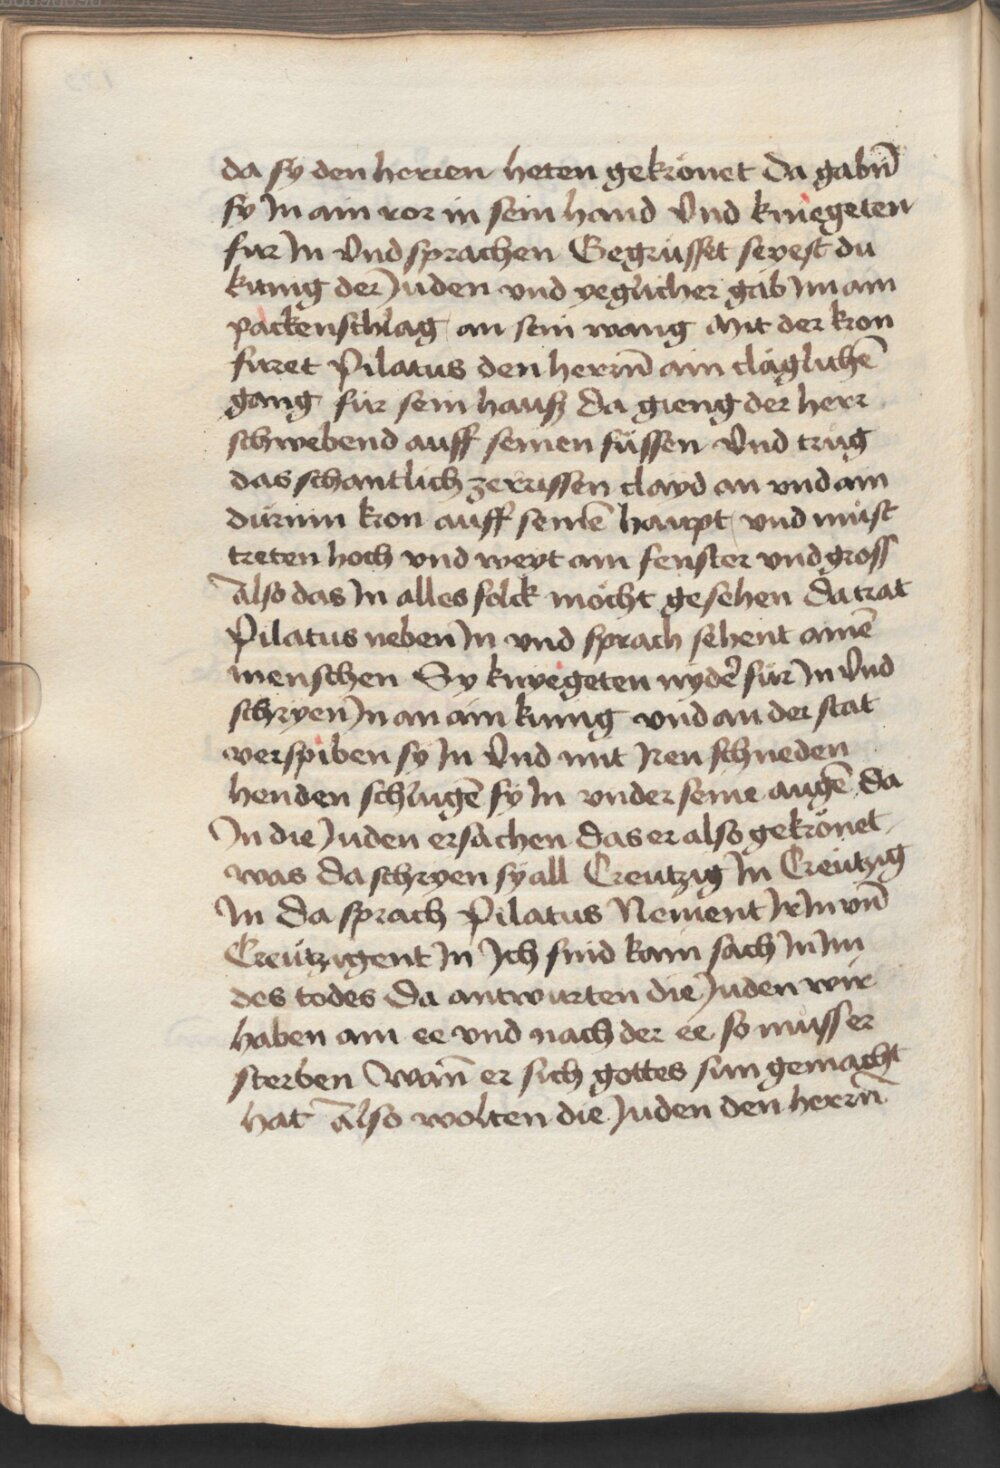 da sy den herren heten gekrönet Da gabn̄
sy In ain ror in sein hand Vnd kniegeten
für In Vnd sprachen Gegrüsset seyest du
künig der Juden vnd yeglicher gab Im ain
packenschlag an sein wang Mit der kron
füret Pilatus den herrn̄ ain cläglichē
gang für sein hauß Da gieng der herr
schwebend auff seinen füssen Vnd trůg
das schantlich zerrissen clayd an vnd ain
dürnin kron auff seinē haupt vnd můst
treten hoch vnd weyt ain fenster vnd gross
Also das In alles folck möcht gesehen Da trat
Pilatus neben In vnd sprach sehent ainē
menschen Sy knyegeten nyder̄ für In Vnd
schryen In an ain künig vnd an der stat
verspiben sy In Vnd mit Iren schnöden
henden schlůgē sy In vnder seine augē Da
In die Juden ersachen das er also gekrönet
was Da schryen sy all Creützig In Creützig
In Da sprach Pilatus Nement Ir In vn̄
Creützigent In Ich find kain sach In Im
des todes Da antwurten die Juden wir
haben ain ee vnd nach der ee so můss er
sterben Wan̄ er sich gottes sun gemacht
hat Also wolten die Juden den herrn̄